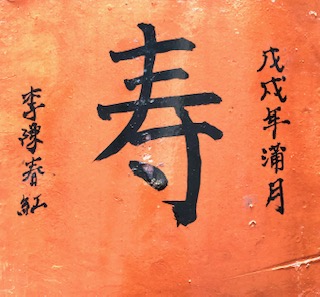 戊戌年蒲月
寿
李陳春紅